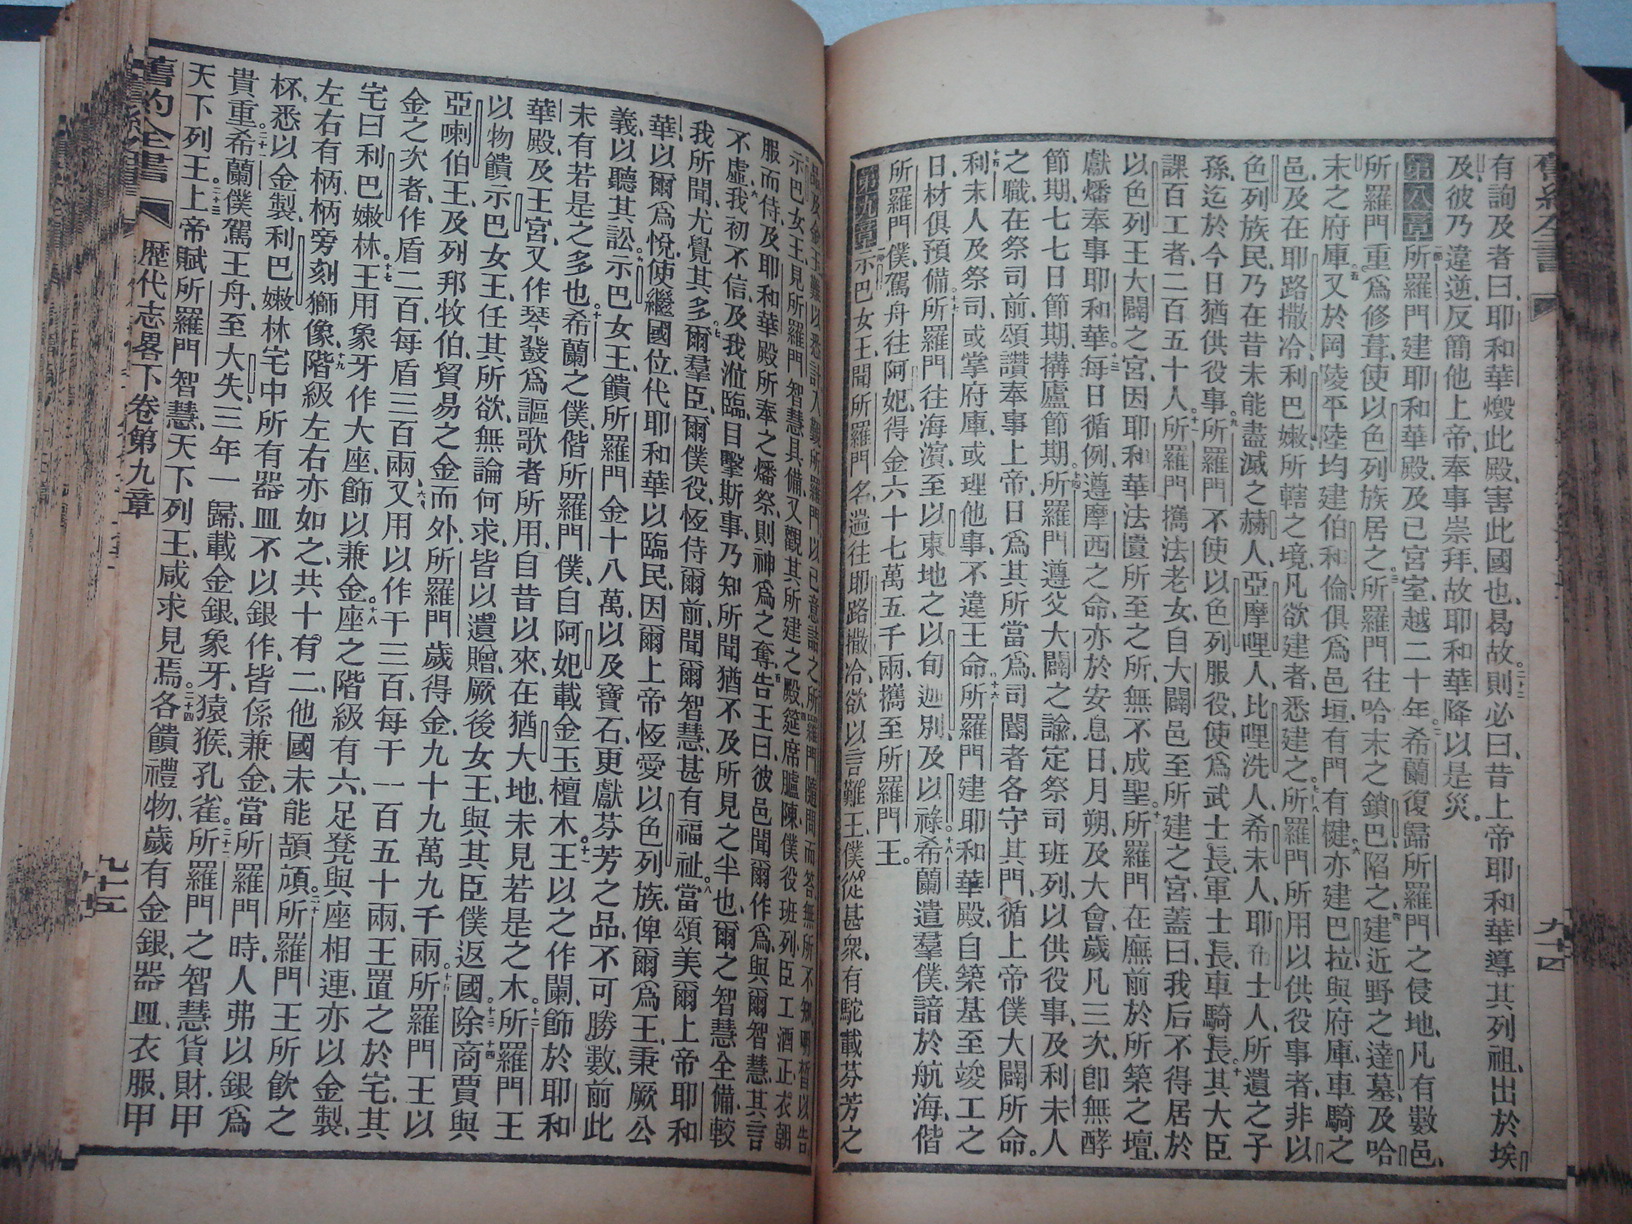 舊約全書
九十四
有詢及者曰耶和華燬此殿害此國也曷故則必曰昔上帝耶和華導其列祖出於埃
及彼乃違逆反簡他上帝奉事崇拜故耶和華降以是災
第八章 所羅門建耶和華殿及己宮室越二十年希蘭復歸所羅門之侵地凡有數邑
所羅門重爲修葺使以色列族居之所羅門往哈末之鎖巴陷之建近野之達墓及哈
末之府庫又於岡陵平陸均建伯和倫俱爲邑垣有門有楗亦建巴拉與府庫車騎之
邑及在耶路撒冷利巴嫩所轄之境凡欲建者悉建之所羅門所用以供役事者非以
色列族民乃在昔未能盡滅之赫人亞摩哩人比哩洗人希未人耶布士人所遺之子
孫迄於今日猶供役事所羅門不使以色列服役使爲武士長軍士長車騎長其大臣
課百工者二百五十人所羅門攜法老女自大闢邑至所建之宮蓋曰我后不得居於
以色列王大闢之宮因耶和華法匱所至之所無不成聖所羅門在廡前於所築之壇
獻燔奉事耶和華每日循例遵摩西之命亦於安息日月朔及大會歲凡三次卽無酵
節期七七日節期搆廬節期所羅門遵父大闢之諭定祭司班列以供役事及利未人
之職在祭司前頌讚奉事上帝日爲其所當爲司閽者各守其門循上帝僕大闢所命
利未人及祭司或掌府庫或理他事不違王命所羅門建耶和華殿自築基至竣工之
日材俱預備所羅門往海濱至以東地之以旬迦別及以祿希蘭遣羣僕諳於航海偕
所羅門僕駕舟往阿妃得金六十七萬五千兩攜至所羅門王
第九章 示巴女王聞所羅門名遄往耶路撒冷欲以言難王僕從甚衆有駝載芬芳之
示巴女王見所羅門智慧具備又觀其所建之殿筵席臚陳僕役班列臣工酒正衣朝
服而侍及耶和華殿所奉之燔祭則神爲之奪告王曰彼邑聞爾作爲與爾智慧其言
不虛我初不信及我涖臨目擊斯事乃知所聞猶不及所見之半也爾之智慧全備較
我所聞尤覺其多爾羣臣爾僕役恆侍爾前聞爾智慧甚有福祉當頌美爾上帝耶和
華以爾爲悅使繼國位代耶和華以臨民因爾上帝恆愛以色列族俾爾爲王秉厥公
義以聽其訟示巴女王饋所羅門金十八萬以及寶石更獻芬芳之品不可勝數前此
未有若是之多也希蘭之僕偕所羅門僕自阿妃載金玉檀木王以之作闌飾於耶和
華殿及王宮又作琴瑟爲謳歌者所用自昔以來在猶大地未見若是之木所羅門王
以物饋示巴女王任其所欲無論何求皆以遺贈厥後女王與其臣僕返國除商賈與
亞喇伯王及列邦牧伯貿易之金而外所羅門歲得金九十九萬九千兩所羅門王以
金之次者作盾二百每盾三百兩又用以作干三百每干一百五十兩王置之於宅其
宅曰利巴嫩林王用象牙作大座飾以兼金座之階級有六足凳與座相連亦以金製
左右有柄柄旁刻獅像階級左右亦如之共十有二他國未能頡頏所羅門王所飲之
杯悉以金製利巴嫩林宅中所有器皿不以銀作皆係兼金當所羅門時人弗以銀爲
貴重希蘭僕駕王舟至大失三年一歸載金銀象牙猿猴孔雀所羅門之智慧貨財甲
天下列王上帝賦所羅門智慧天下列王咸求見焉各饋禮物歲有金銀器皿衣服甲
舊約全書
歷代志畧下卷第九章
九十五